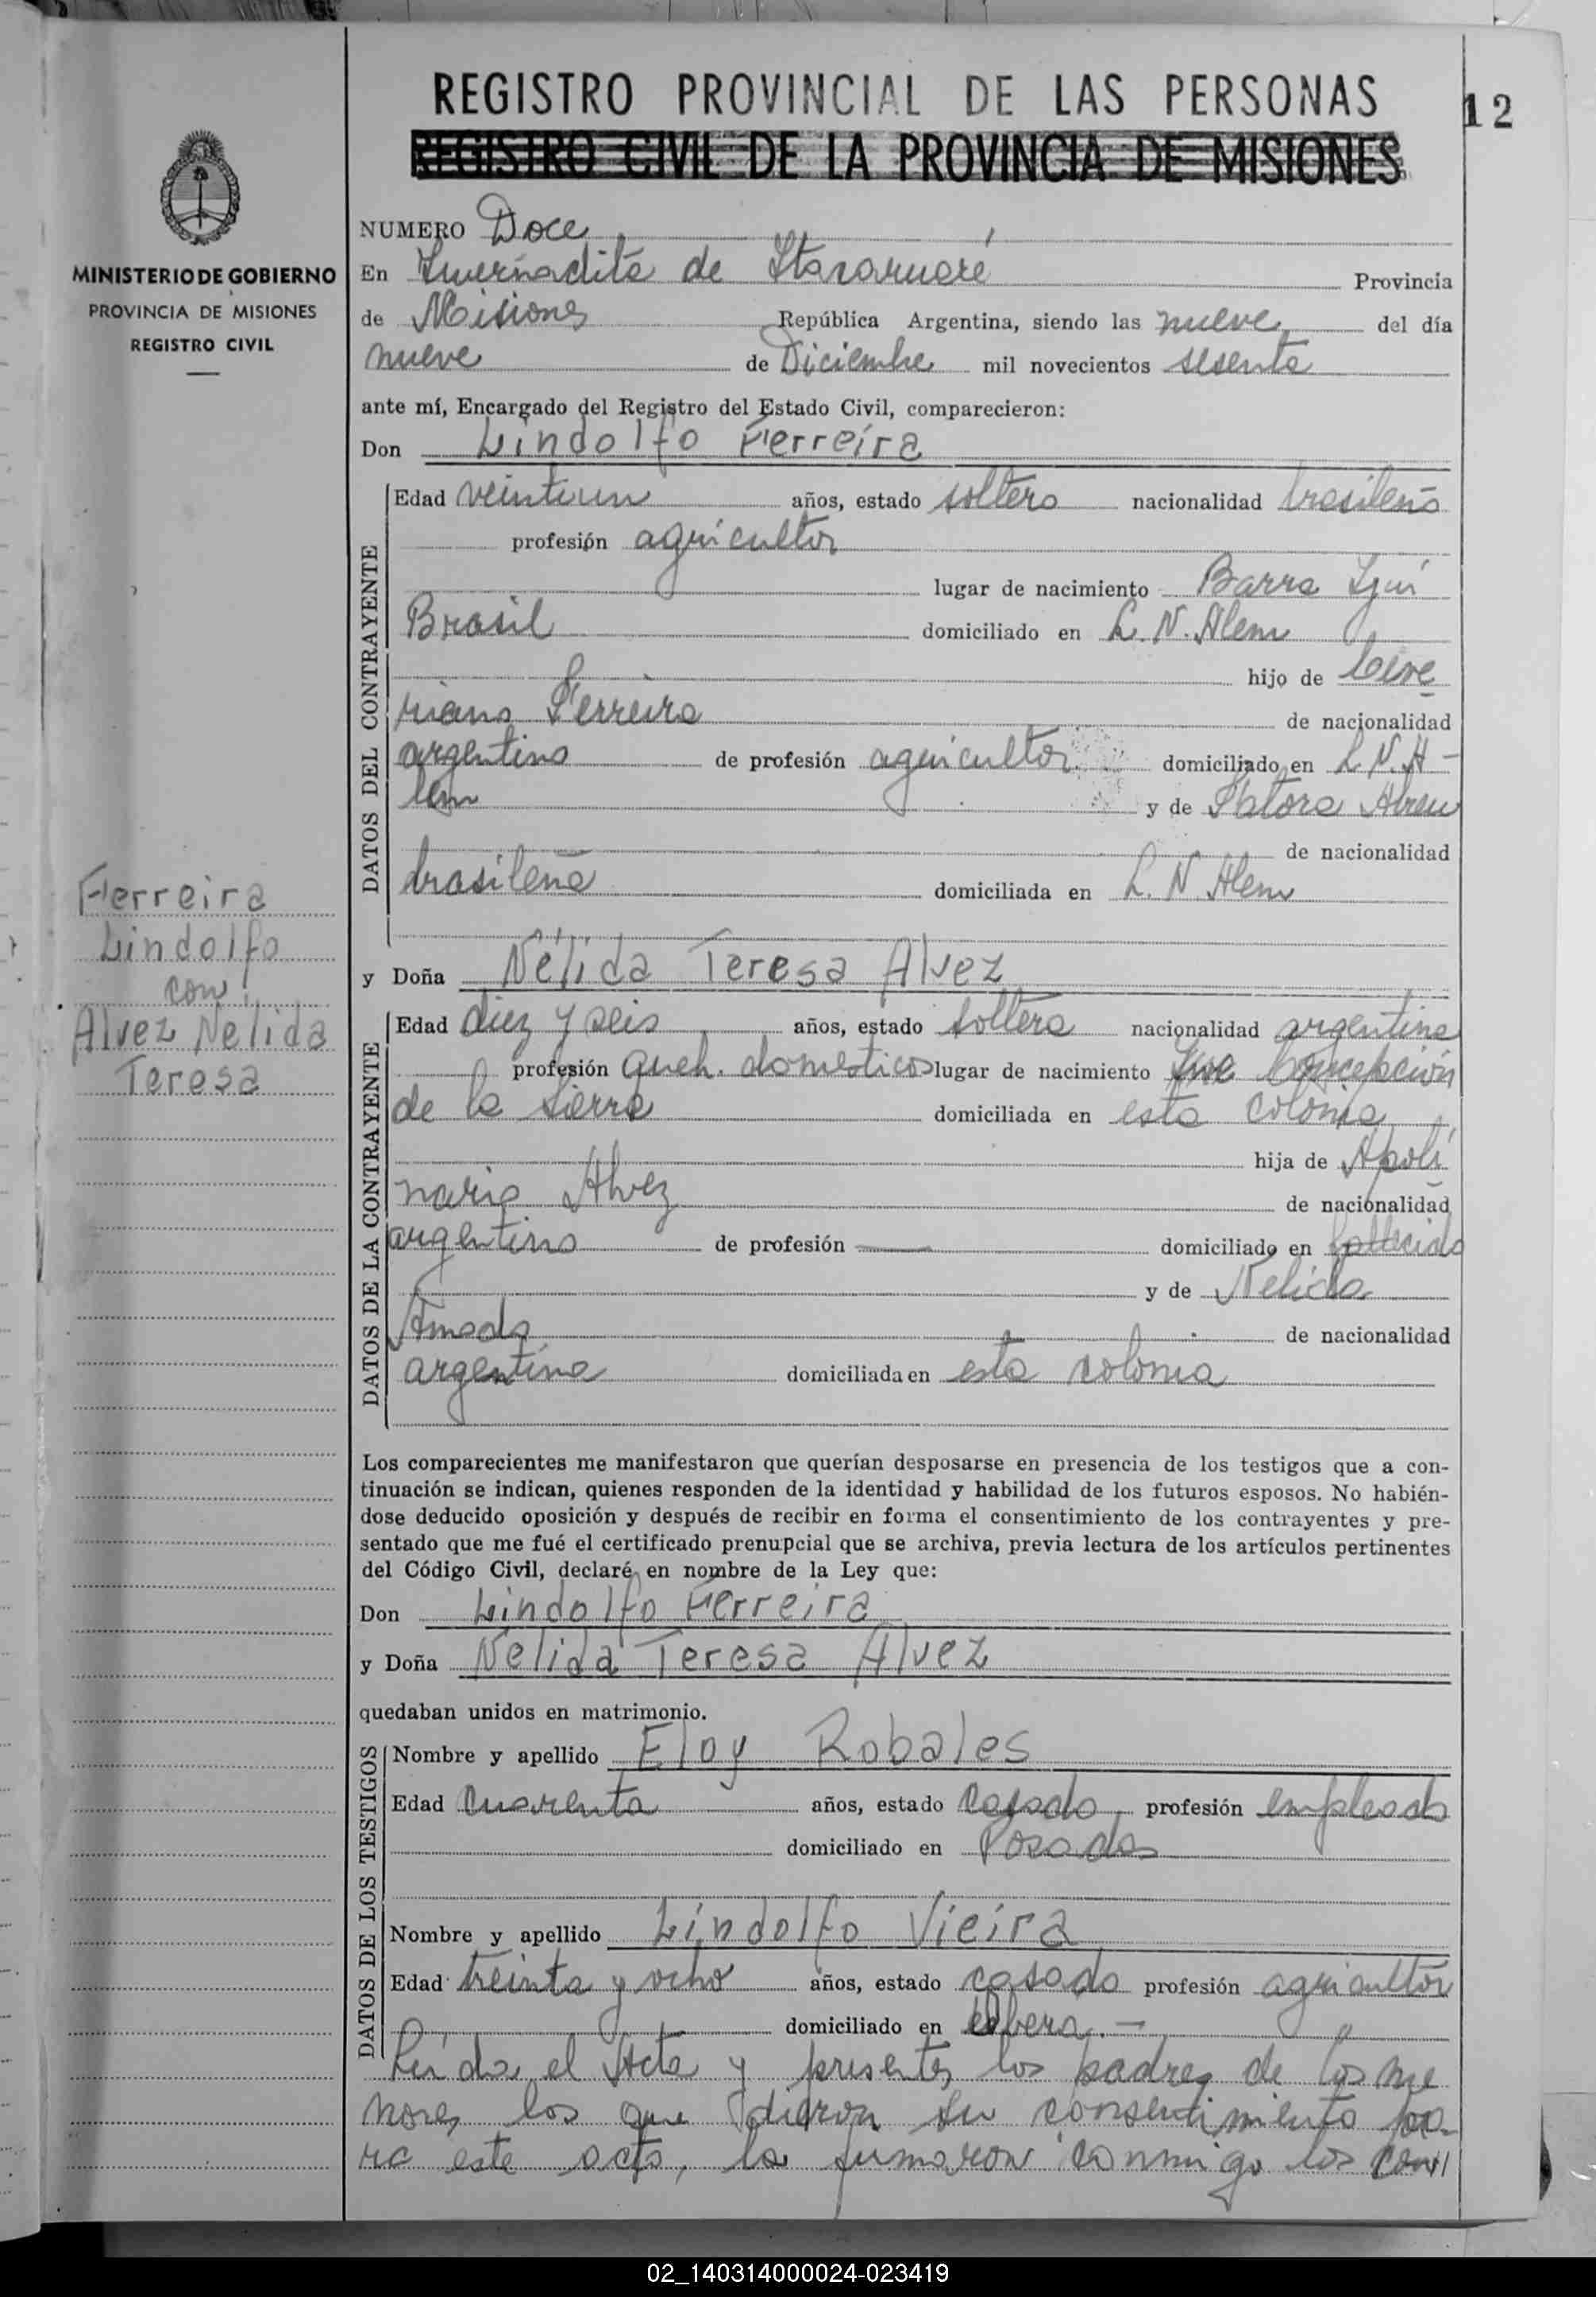 REGISTRO PROVINCIAL DE LAS PERSONAS
12
REGISTRO CIVIL DE LA PROVINCIA DE MISIONES
MINISTERIO DE GOBIERNO
PROVINCIA DE MISIONES
REGISTRO CIVIL
NUMERO Doce
En Invernadita de Itacaruaré Provincia
de Misiones República Argentina, siendo las nueve del día
nueve de Diciembre mil novecientos sesenta
ante mí, Encargado del Registro del Estado Civil, comparecieron:
Don Lindolfo Ferreira
DATOS DEL CONTRAYENTE
Edad veintiun años, estado soltero nacionalidad brasileño
profesión agricultor
lugar de nacimiento Barra Ijui
Brasil domiciliado en L. N. Alem
hijo de
riano Ferreira de nacionalidad
argentino de profesión agricultor domiciliado en L. N. A-
lem y de Abreu
de nacionalidad
brasileña domiciliada en L. N. Alem
Ferreira
Lindolfo
con
Alvez Nelida
Teresa
y Doña Nélida Teresa Alvez
DATOS DE LA CONTRAYENTE
Edad diez y seis años, estado soltera nacionalidad argentina
profesión queh. domesticos lugar de nacimiento Concepción
de la Sierra domiciliada en esta colonia
hija de Apoli
nario Alvez de nacionalidad
argentino de profesión — domiciliado en fallecido
y de Nelida
Amado de nacionalidad
argentina domiciliada en esta colonia
Los comparecientes me manifestaron que querían desposarse en presencia de los testigos que a con-
tinuación se indican, quienes responden de la identidad y habilidad de los futuros esposos. No habién-
dose deducido oposición y después de recibir en forma el consentimiento de los contrayentes y pre-
sentado que me fué el certificado prenupcial que se archiva, previa lectura de los artículos pertinentes
del Código Civil, declaré en nombre de la Ley que:
Don Lindolfo Ferreira
y Doña Nelida Teresa Alvez
quedaban unidos en matrimonio.
DATOS DE LOS TESTIGOS
Nombre y apellido Eloy Robales
Edad Cuarenta años, estado Casado profesión empleado
domiciliado en Posadas
Nombre y apellido Lindolfo Vieira
Edad treinta y ocho años, estado casado profesión agricultor
domiciliado en Obera. —
Leída el Acta y presentes los padres de los me
nores los que dieron su consentimiento pa-
ra este acto, la firmaron conmigo los con
02_140314000024-023419